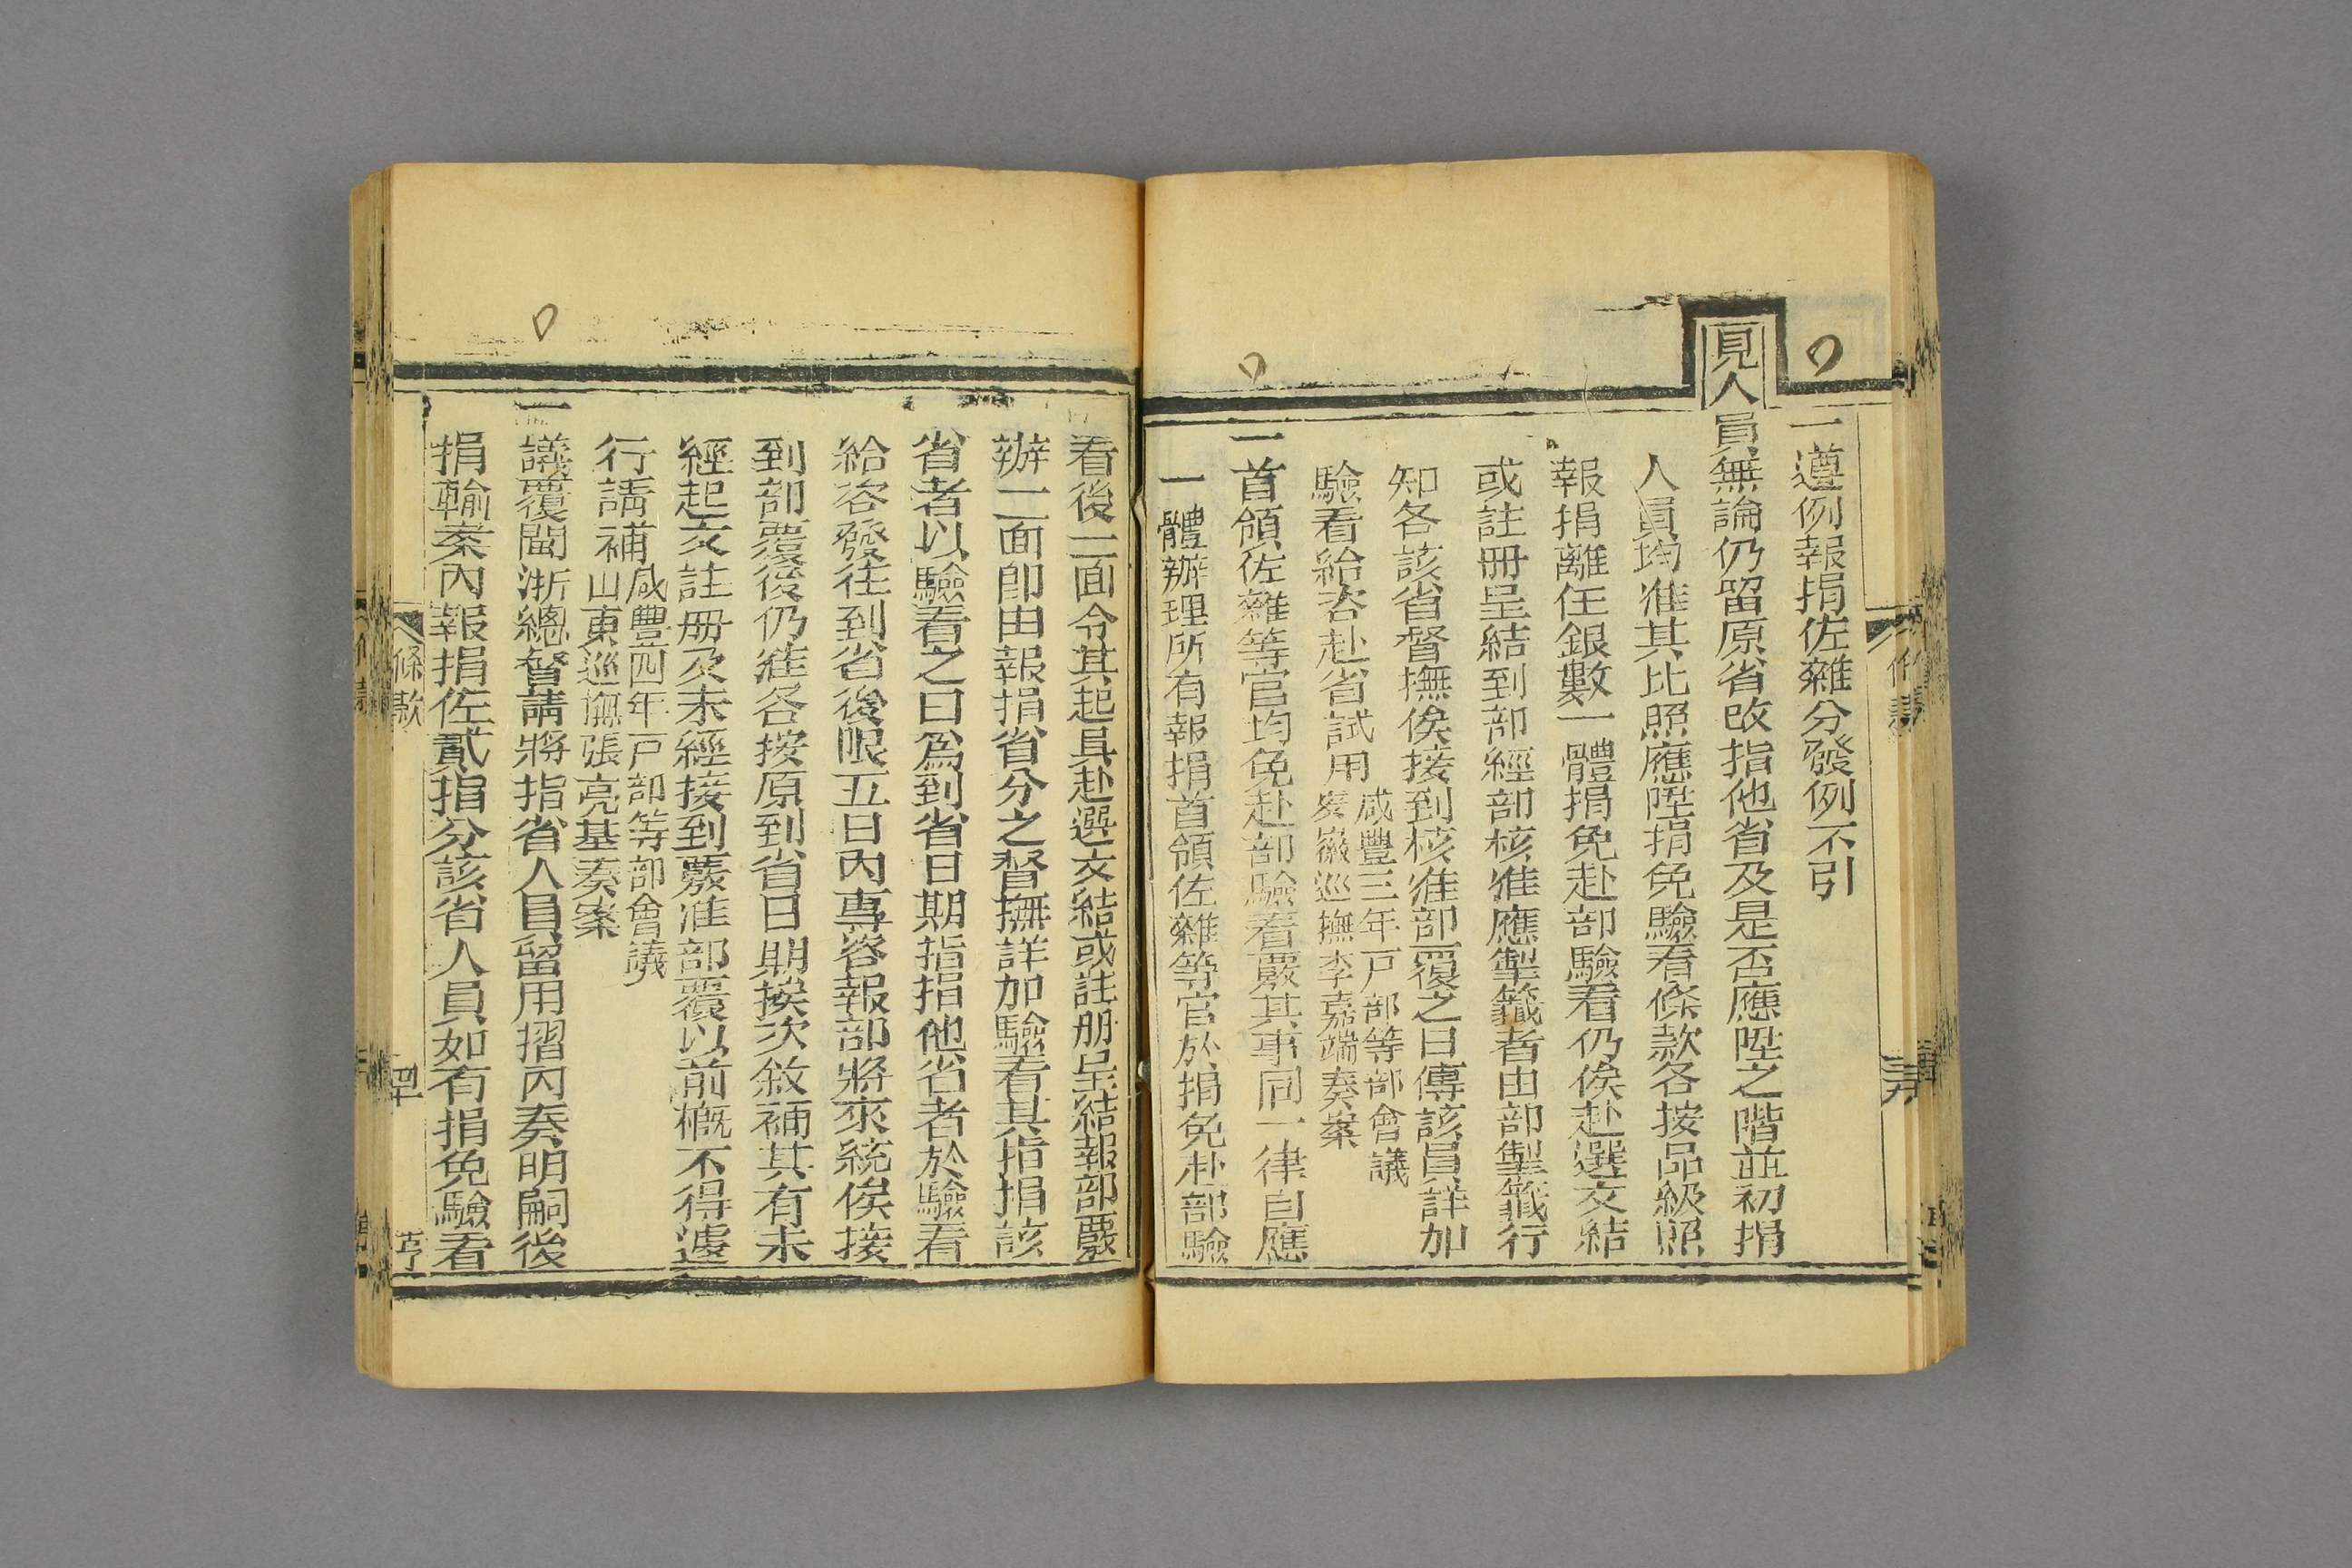 一遵例報捐佐雜分發例不引
見人員無論仍留原省改指他省及是否應陞之階並初捐
人員均准其比照應陞捐免驗看條款各按品級照
報捐離任銀數一體捐免赴部驗看仍俟赴選文結
或註冊呈結到部經部核准應掣籤者由部掣籤行
知各該省督撫俟接到核准部覆之日傳該員詳加
驗看給咨赴省試用
咸豐三年戸部等部會議
安徽巡撫李嘉端奏案
一首領佐雜等官均免赴部驗看覈其事同一律自應
一體辦理所有報捐首領佐雜等官於捐免赴部驗
看後一面令其起具赴選文結或註册呈結報部覈
辦一面卽由報捐省分之督撫詳加驗看其指捐該
省者以驗看之日爲到省日期指捐他省者於驗看
給咨發往到省後限五日內專咨報部將來統俟接
到部覆後仍准各按原到省日期挨次敘補其有未
經起文註册及未經接到覈准部覆以前槪不得遽
行請補
咸豐四年戸部等部會議
山東巡撫張亮基奏案
一議覆閩浙總督請將指省人員留用摺內奏明嗣後
捐輸案內報捐佐貳指分該省人員如有捐免驗看
條款
亨